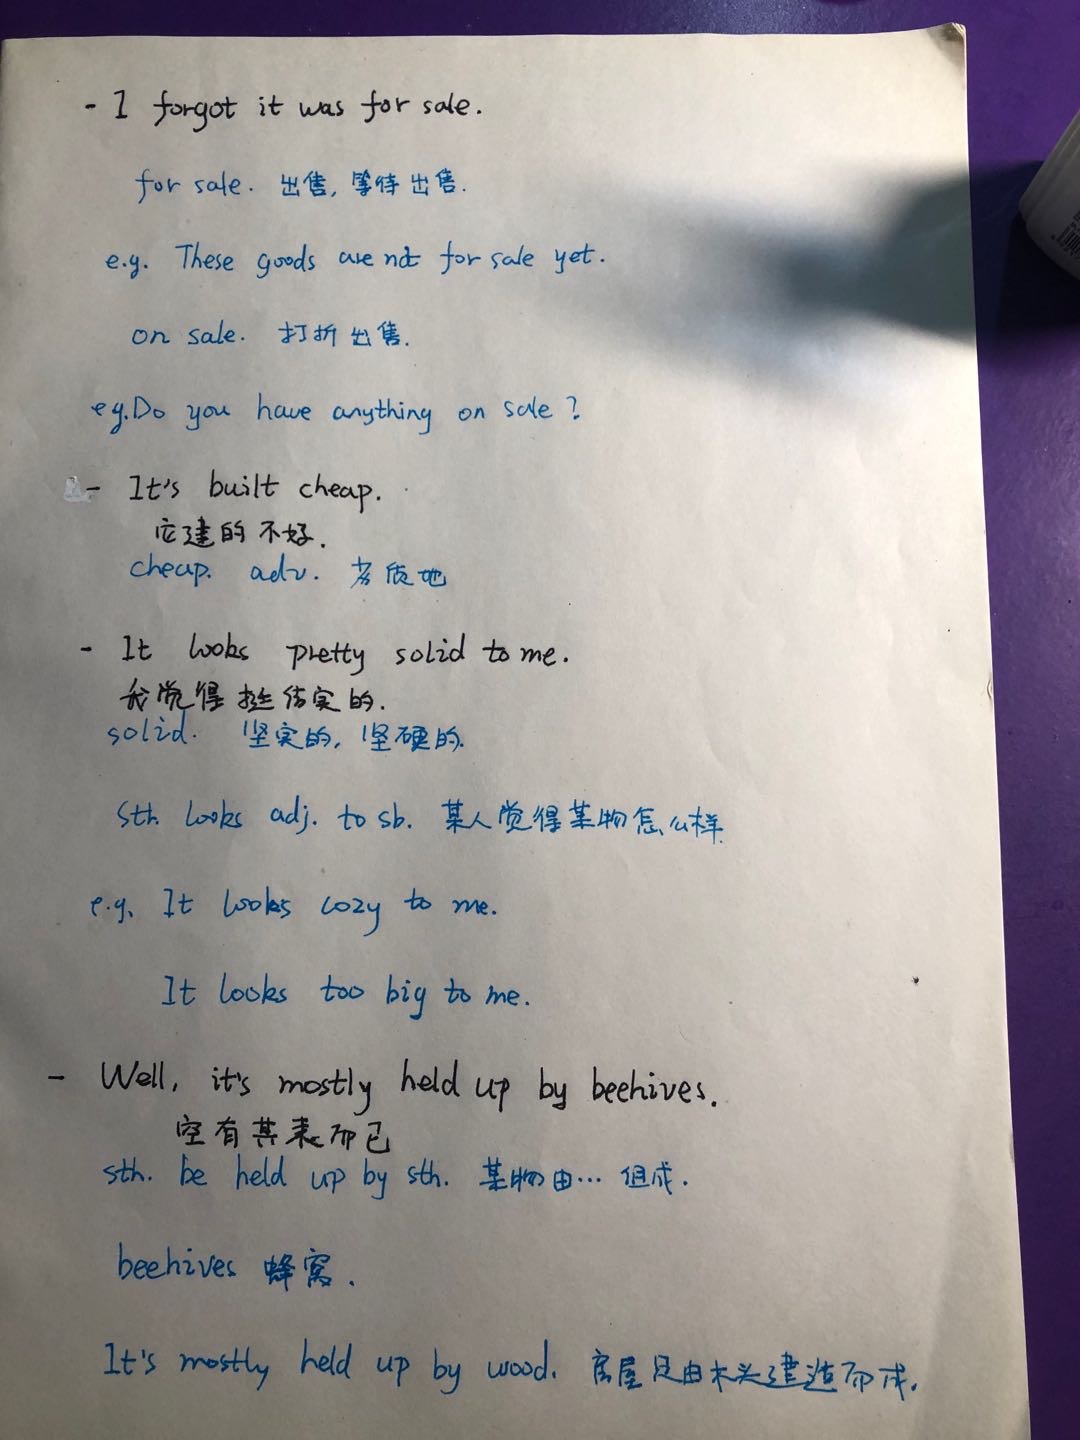 - I forgot it was for sale.
for sale. 出售, 等待出售.
e.g. These goods are not for sale yet.
on sale. 打折出售.
eg. Do you have anything on sale?
- It's built cheap.
它建的不好.
cheap. adv. 劣质地
- It looks pretty solid to me.
我觉得挺结实的.
solid. 坚实的, 坚硬的.
sth. looks adj. to sb. 某人觉得某物怎么样.
e.g. It looks cozy to me.
It looks too big to me.
- Well, it's mostly held up by beehives.
空有其表而已
sth. be held up by sth. 某物由… 组成.
beehives 蜂窝.
It's mostly held up by wood. 房屋是由木头建造而成.